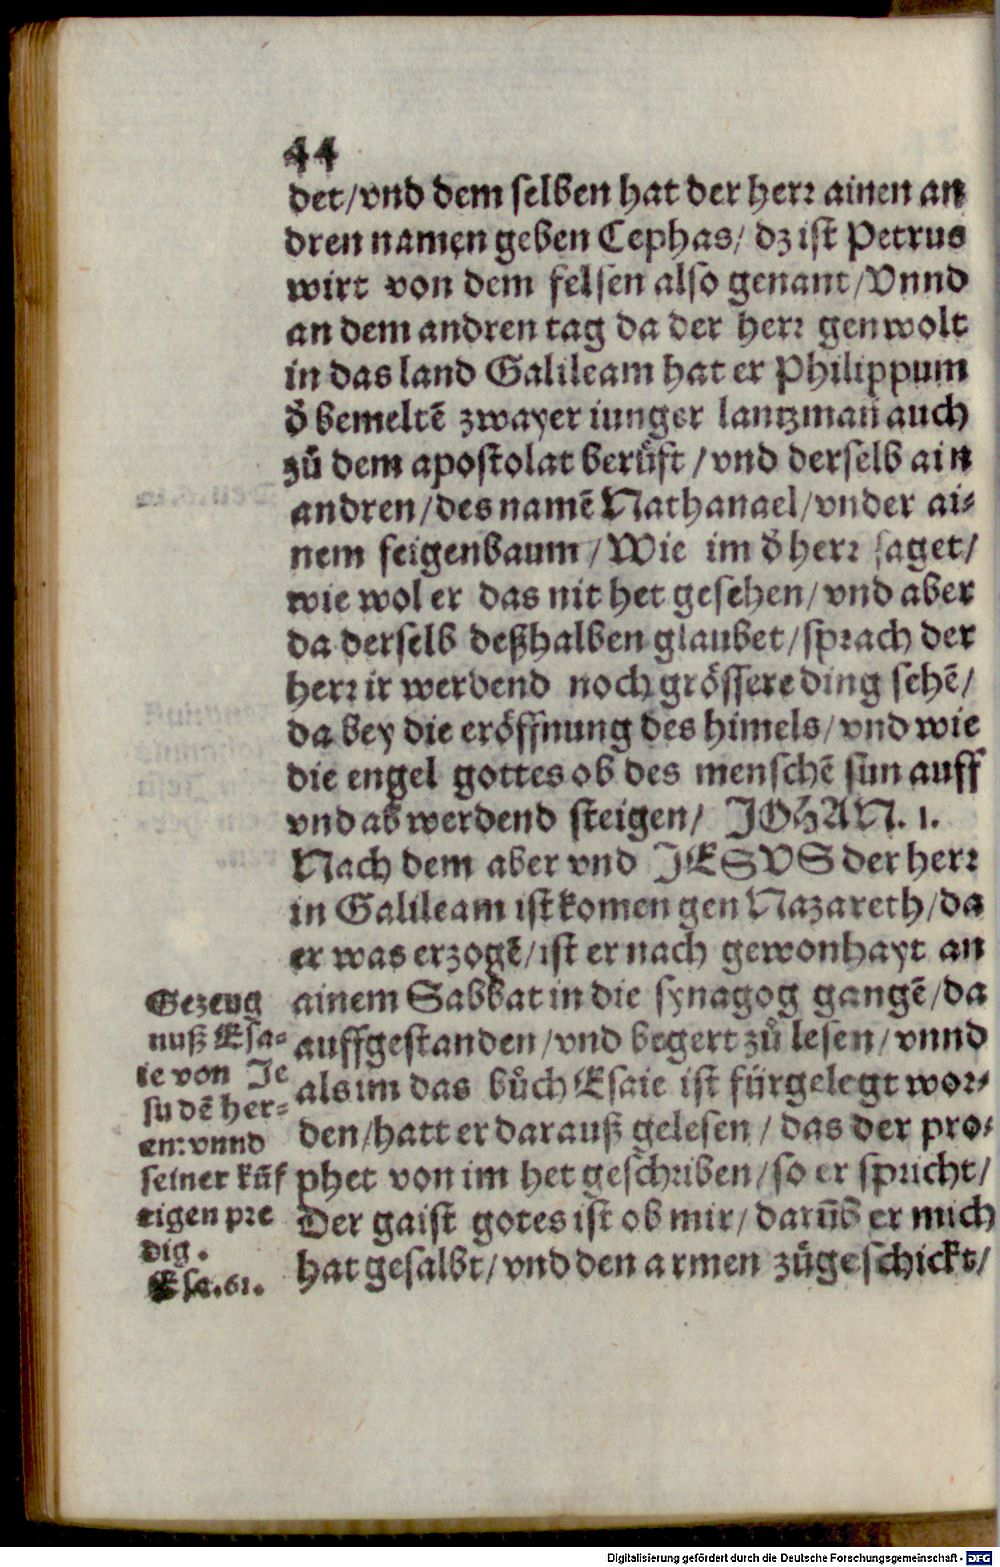 44
det/vnd dem selben hat der herr ainen an
dren namen geben Cephas/ dz ist Petrus
wirt von dem felsen also genant/Vnnd
an dem andren tag da der herr gen wolt
in das land Galileam hat er Philippum
d̕ bemeltē zwayer iunger lantzman auch
zů dem apostolat berůft/vnd derselb ain
andren/des namē Nathanael/vnder ai⸗
nem feigenbaum/Wie im d̕ herr saget/
wie wol er das nit het gesehen/vnd aber
da derselb deßhalben glaubet/sprach der
herr ir werdend noch grössere ding sehē/
da bey die eröffnung des himels/vnd wie
die engel gottes ob des menschē sun auff
vnd ab werdend steigen/ JOHAN. 1.
Nach dem aber vnd JESVS der herr
in Galileam ist komen gen Nazareth/da
er was erzogē/ist er nach gewonhayt an
ainem Sabbat in die synagog gangē/da
auffgestanden/vnd begert zů lesen/vnnd
als im das bůch Esaie ist fürgelegt wor⸗
den/hatt er darauß gelesen/das der pro⸗
phet von im het geschriben/so er spricht/
Der gaist gotes ist ob mir/darūb er mich
hat gesalbt/vnd den armen zůgeschickt/
Gezeug
nuß Esa⸗
ie von Je
su dē her⸗
en: vnnd
seiner kūf
tigen pre
dig.
Esa.61.
Digitalisierung gefördert durch die Deutsche Forschungsgemeinschaft - DFG